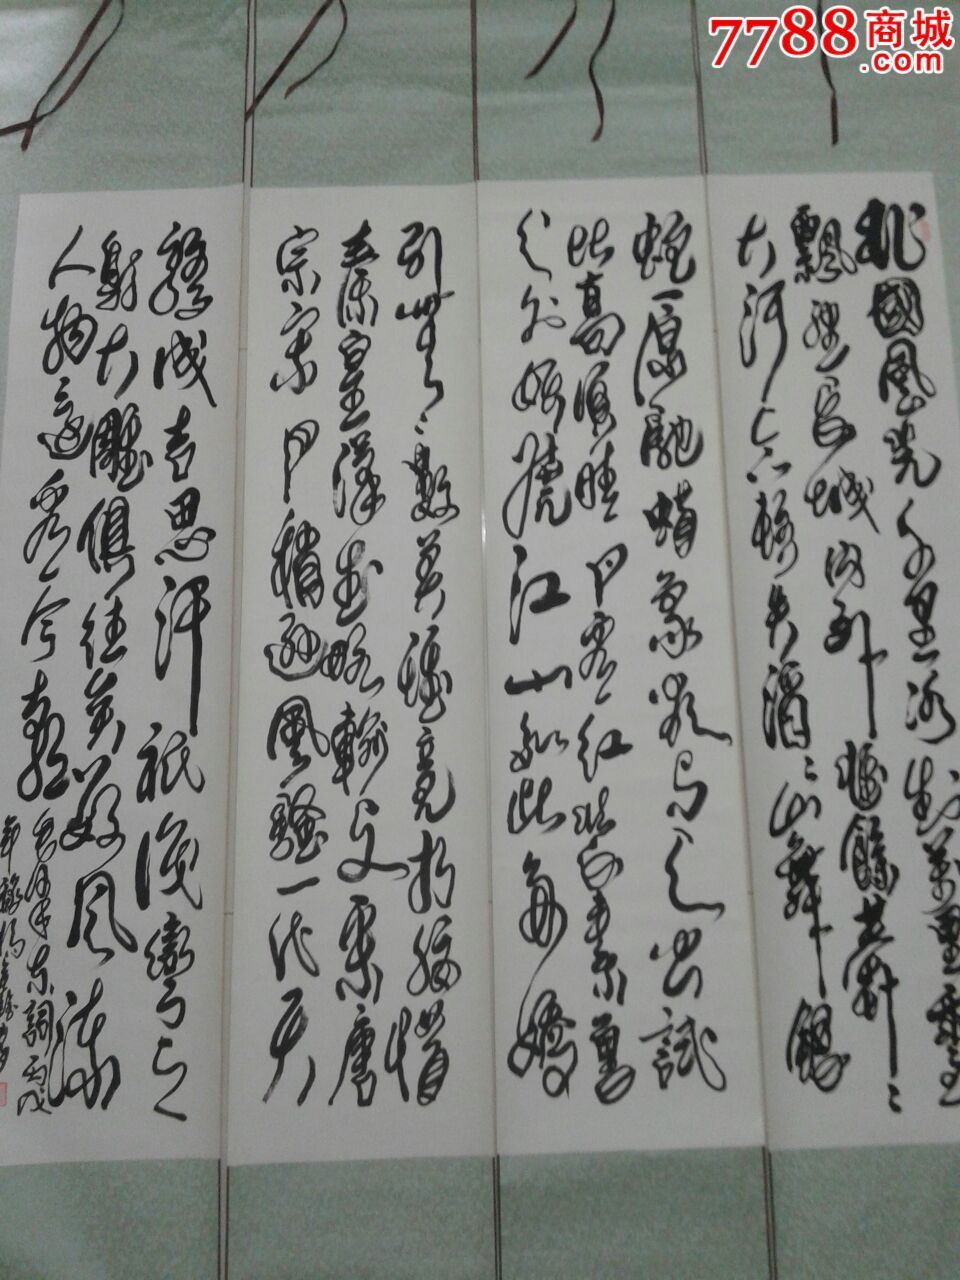 7788商城
.com
北國風光千里冰封萬里雪
飄望長城內外惟餘莽々
大河上下頓失滔々山舞銀
蛇原馳蠟象欲与天公試
比高須晴日看紅裝素裹
分外妖嬈江山如此多嬌
引無數英雄競折腰惜
秦皇漢武略輸文采唐
宗宋祖稍遜風騷一代天
驕成吉思汗祇識彎弓
射大雕俱往矣數風流
人物還看今朝
毛澤東詞丙戌
年